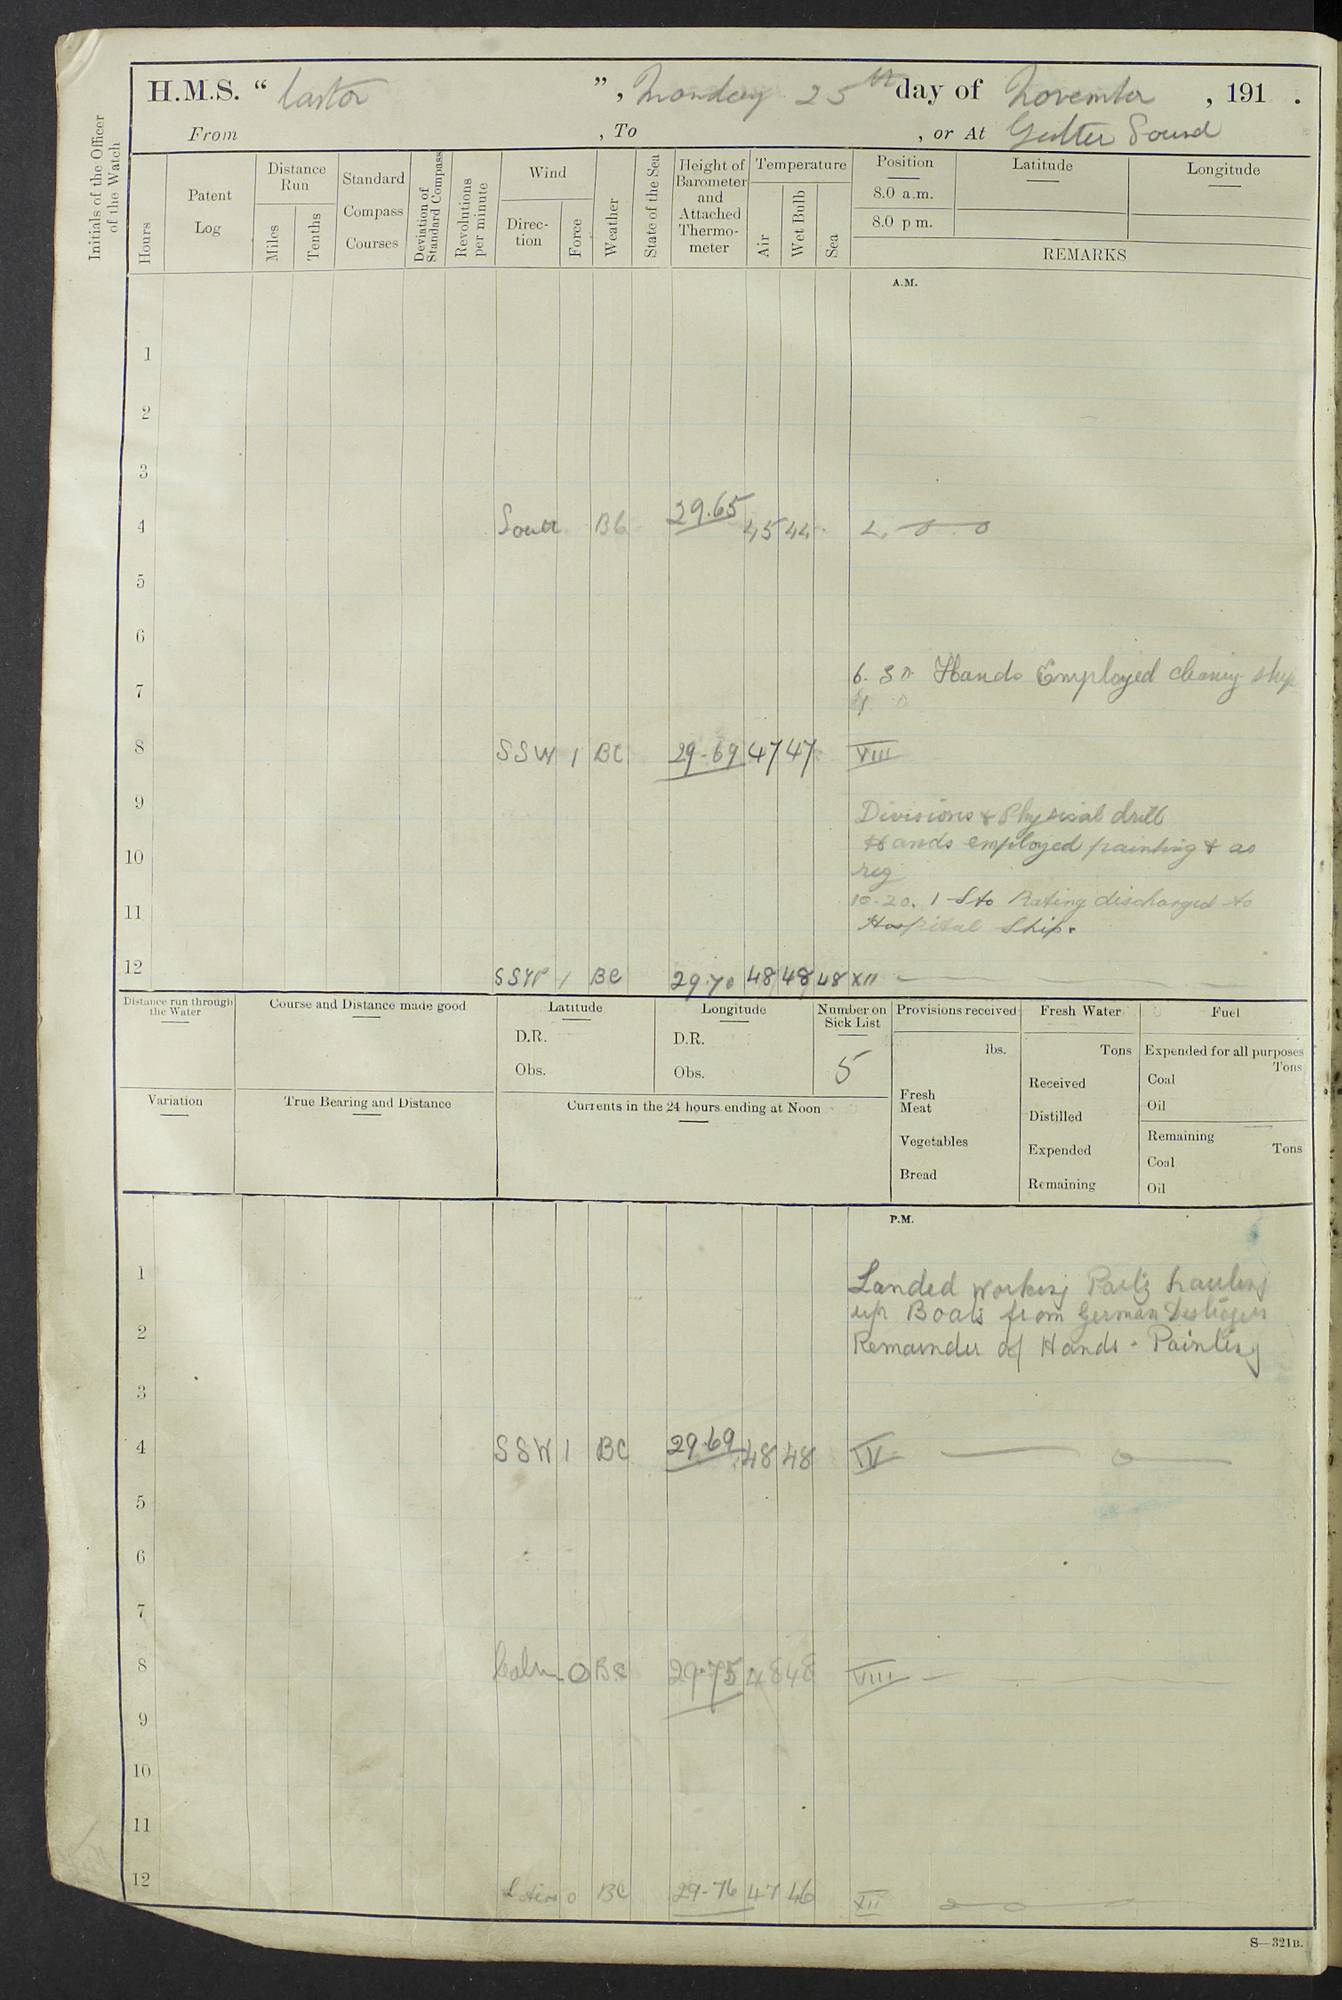 H.M.S. “ Castor ”, Monday 25th day of November , 191 .
From , To , or At Gutter Sound
Initials of the Officer of the Watch
Hours
Patent Log
Distance Run
Miles
Tenths
Standard Compass Courses
Deviation of Standard Compass
Revolutions per minute
Wind
Direc-tion
Force
Weather
State of the Sea
Height of Barometer and Attached Thermo-meter
Temperature
Air
Wet Bulb
Sea
Position
8.0 a.m.
8.0 p m.
Latitude
Longitude
REMARKS
A.M.
1
2
3
4 BC 29.65 45 44
5
6
6. 30 Hands Employed cleaning ship
7
8 SSW 1 BC 29.69 47 47 VIII
9
Divisions & Physical drill
10 Hands employed painting & as
req
10.20. 1 Sto Rating discharged to
11
Hospital Ship.
12 SSW 1 BC 29.70 48 48 48 XII
Distance run through the Water
Course and Distance made good
Latitude
D.R.
Obs.
Longitude
D.R.
Obs.
Number on Sick List
5
Provisions received
lbs.
Fresh Meat
Vegetables
Bread
Fresh Water
Tons
Received
Distilled
Expended
Remaining
Fuel
Expended for all purposes
Tons
Coal
Oil
Remaining
Tons
Coal
Oil
Variation
True Bearing and Distance
Currents in the 24 hours ending at Noon
P.M.
1
Landed working Party hauling
up Boats from German Destroyers
2
Remainder of Hands - Painting
3
4 SSW 1 BC 29.69 48 48 IV
5
6
7
8 Calm 0 BC 29.75 48 48 VIII
9
10
11
12 0 BC 29.76 47 46 XII
S—321B.